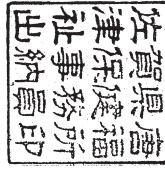 佐賀県唐
津保健福
祉事務所
出納員印